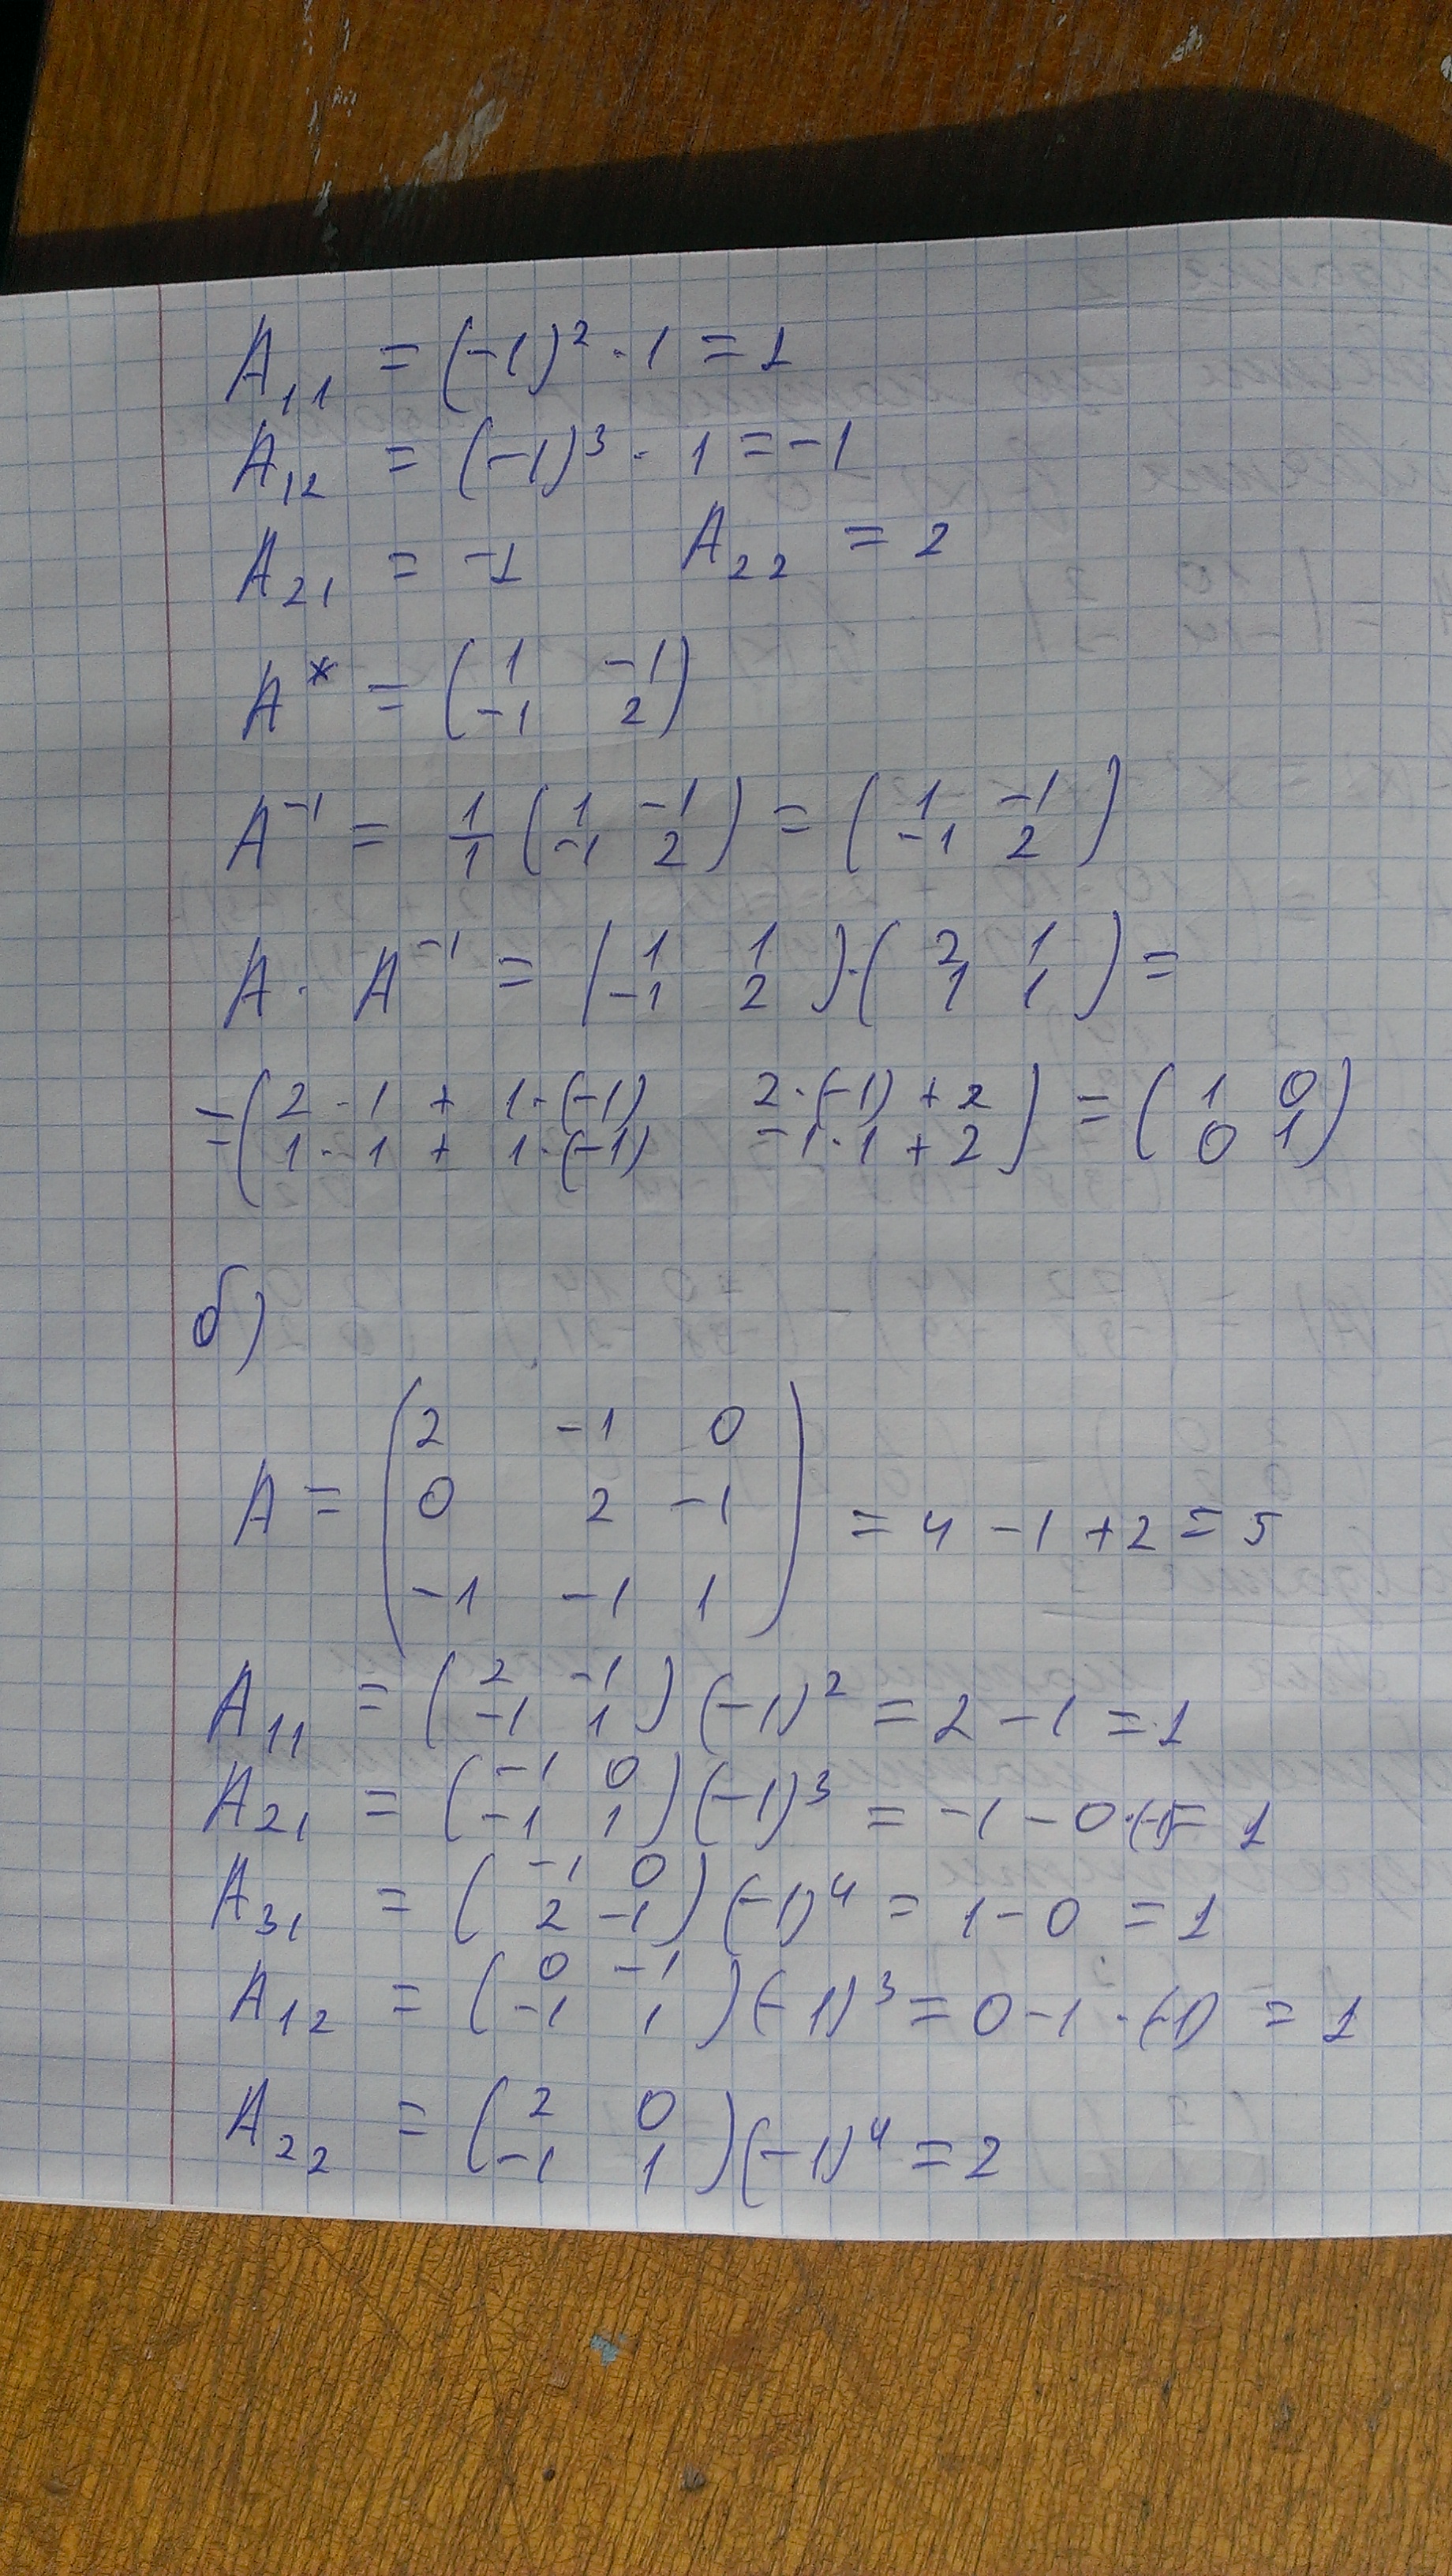 A₁₁ = (-1)² · 1 = 1
A₁₂ = (-1)³ · 1 = -1
A₂₁ = -1 A₂₂ = 2
A* = ( 1 -1
-1 2 )
A⁻¹ = 1/1 ( 1 -1
-1 2 ) = ( 1 -1
-1 2 )
A · A⁻¹ = ( 1 1
-1 2 ) · ( 2 1
1 1 ) =
= ( 2 · 1 + 1 · (-1) 2 · (-1) + 2
1 · 1 + 1 · (-1) -1 · 1 + 2 ) = ( 1 0
0 1 )
б)
A = ( 2 -1 0
0 2 -1
-1 -1 1 ) = 4 - 1 + 2 = 5
A₁₁ = ( 2 -1
-1 1 ) (-1)² = 2 - 1 = 1
A₂₁ = ( -1 0
-1 1 ) (-1)³ = -1 - 0 · (-1) = 1
A₃₁ = ( -1 0
2 -1 ) (-1)⁴ = 1 - 0 = 1
A₁₂ = ( 0 -1
-1 1 ) (-1)³ = 0 - 1 · (-1) = 1
A₂₂ = ( 2 0
-1 1 ) (-1)⁴ = 2